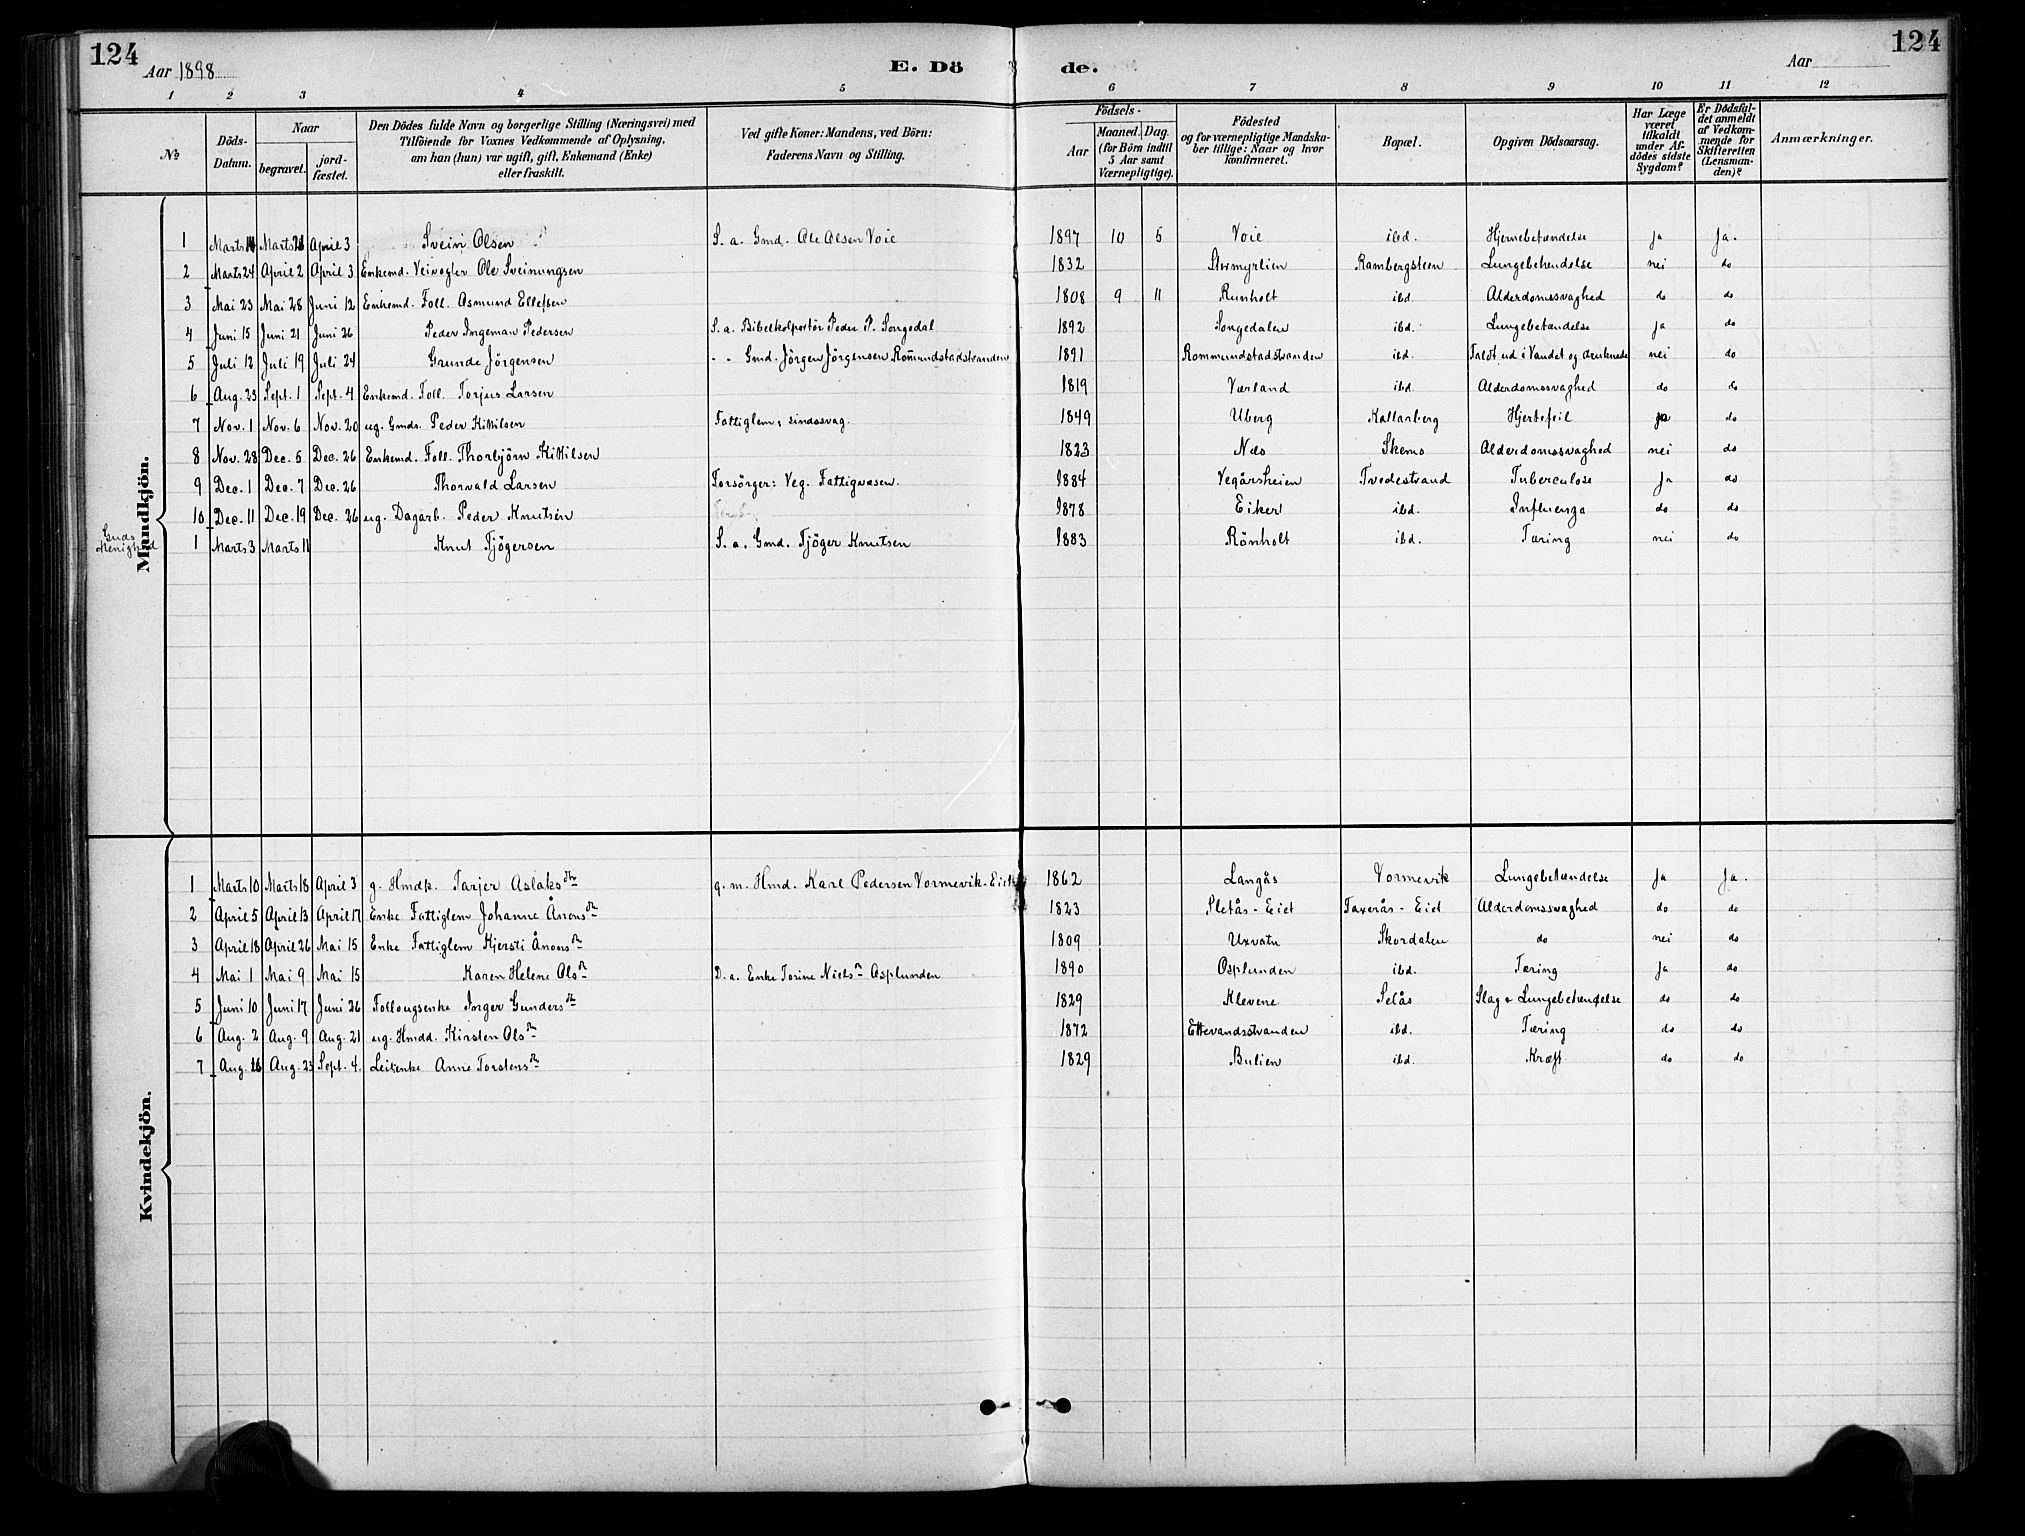 124
124
Aar 1898
E. Dö
de.
Aar
1 2 3 4 5 6 7 8 9 10 11 12
No
Döds-Datum.
Naar
begravet.
jord-fæstet.
Den Dödes fulde Navn og borgerlige Stilling (Næringsvei) med
Tilföiende for Voxnes Vedkommende af Oplysning,
om han (hun) var ugift, gift, Enkemand (Enke)
eller fraskilt.
Ved gifte Koner: Mandens, ved Börn:
Faderens Navn og Stilling.
Födsels-
Aar
Maaned. Dag.
(for Börn indtil
5 Aar samt
Værnepligtige).
Födested
og for værnepligtige Mandska-
ber tillige: Naar og hvor
konfirmeret.
Bopæl.
Opgiven Dödsaarsag.
Har Læge
været
tilkaldt
under Af-
dödes sidste
Sygdom?
Er Dødsfal-
det anmeldt
af Vedkom-
mende for
Skifteretten
(Lensman-
den)?
Anmærkninger.
Mandkjön.
1 Marts 14 Marts 23 April 3 Svein Olsen S. a. Gmd. Ole Olsen Voie 1897 10 5 Voie ibd. Hjernebetændelse ja ja.
2 Marts 24 April 2 April 3 Enkemd. Veivogter Ole Sveinungsen 1832 Stromyrlien Rambergsteen Lungebetændelse nei do
3 Mai 23 Mai 28 Juni 12 Enkemd. Foll. Asmund Ellefsen 1808 9 11 Runholt ibd. Alderdomssvaghed do do
4 Juni 15 Juni 21 Juni 26 Peder Ingeman Pedersen S. a. Bibelkolportör Peder P. Songedal 1892 Songedalen ibd. Lungebetændelse ja do
5 Juli 12 Juli 19 Juli 24 Grunde Jörgensen - - Gmd. Jörgen Jörgensen Rommundstadstranden 1891 Rommundstadstranden ibd. Faldt ud i Vandet og druknede nei do
6 Aug. 23 Sept. 1 Sept. 4 Enkemd. Foll. Torjus Larsen 1819 Værland ibd. Alderdomssvaghed do do
7 Nov. 1 Nov. 6 Nov. 20 ug. Gmds. Peder Kittilsen Fattiglem, sindssvag. 1849 Uberg Kallarberg Hjertefeil ja do
8 Nov. 28 Dec. 5 Dec. 26 Enkemd. Foll. Thorbjörn Kittilsen 1823 Næs Skemo Alderdomssvaghed nei do
9 Dec. 1 Dec. 7 Dec. 26 Thorvald Larsen Forsörger: Veg. Fattigvæsen. 1884 Vegårsheien Tvedestrand Tuberculose ja do
10 Dec. 11 Dec. 19 Dec. 26 ug. Dagarb. Peder Knutsen 1878 Eiker ibd. Influenza do do
Guds Menighed 1 Marts 3 Marts 11 Knut Tjögersen S. a. Gmd. Tjöger Knutsen 1883 Rönholt ibd. Tæring nei do
Kvindekjön.
1 Marts 10 Marts 18 April 3 g. Hmdk. Tarjer Aslaksdtr g. m. Hmd. Karl Pedersen Vormevik-Eiet 1862 Langås Vormevik Lungebetændelse ja ja.
2 April 5 April 13 April 17 Enke Fattiglem Johanne Ånonsdtr 1823 Sletås-Eiet Taxerås-Eiet Alderdomssvaghed do do
3 April 18 April 26 Mai 15 Enke Fattiglem Kjersti Ånonsdtr 1809 Uxvatn Skordalen do nei do
4 Mai 1 Mai 9 Mai 15 Karen Helene Olsdtr D. a. Enke Torine Nielsdtr Osplunden 1890 Osplunden ibd. Tæring ja do
5 Juni 10 Juni 17 Juni 26 Follougsenke Inger Gundersdtr 1829 Klevene Selås Slag & Lungebetændelse do do
6 Aug. 2 Aug. 9 Aug. 21 ug. Hmdd. Kirsten Olsdtr 1872 Ettevandsstranden ibd. Tæring do do
7 Aug. 16 Aug. 23 Sept. 4. Leienke Anne Torstensdtr 1829 Bulien ibd. Kræft do do